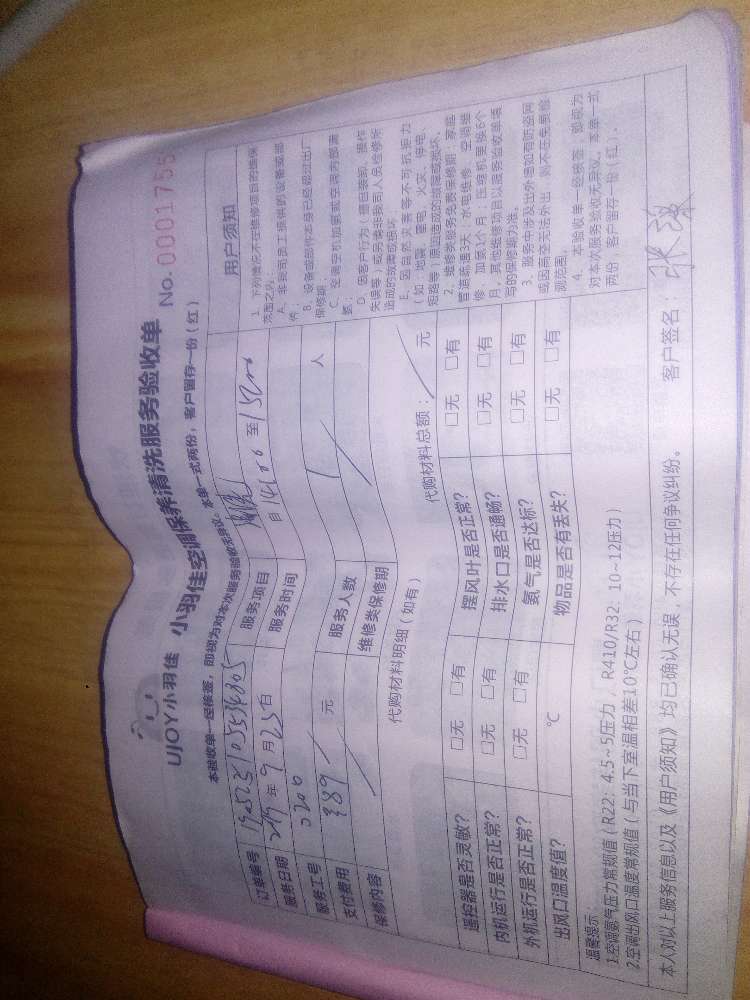 UJOY小羽佳 小羽佳空调保养清洗服务验收单 No. 0001755
本验收单一经核签，即视为对本次服务验收无异议。本单一式两份，客户留存一份（红）
订单编号 服务项目
服务日期 2019 年 9 月 25 日 服务时间 日 14:00 至 15:00
服务工号 0200
支付费用 389 元 服务人数 1 人
保修内容 维修类保修期
代购材料明细（如有） 代购材料总额： 元
遥控器是否灵敏？ □无 □有 摆风叶是否正常？ □无 □有
内机运行是否正常？ □无 □有 排水口是否通畅？ □无 □有
外机运行是否正常？ □无 □有 氨气是否达标？ □无 □有
出风口温度值？ ℃ 物品是否有丢失？ □无 □有
用户须知
1. 下列情况不在维修项目的质保
范围之内：
A. 非我司员工提供的设备或部
件；
B. 设备或部件本身已经超过出厂
保修期
C. 空调空机加氨或空调内部清
D. 因客户行为（擅自装卸、操作
失误等）或另请非我司人员检修所
造成的故障或损坏
E. 因自然灾害等不可抗拒力
（如：地震、雷电、火灾、停电、
短路等）原因造成的故障或损坏。
2. 维修类服务免费保修期：家庭
管道疏通3天；水电维修、空调维
修、加氨1个月，压缩机更换6个
月，其他维修项目以服务验收单填
写的保修期为准。
3. 服务中涉及出外墙如有防盗网
或因高空无法外出，则不在免费检
测范围。
4. 本验收单一经核签，即视为
对本次服务验收无异议。本单一式
两份，客户留存一份（红）。
温馨提示：
1.空调氨气压力常规值（R22：4.5~5压力，R410/R32：10~12压力）
2.空调出风口温度常规值（与当下室温相差10℃左右）
本人对以上服务信息以及《用户须知》均已确认无误，不存在任何争议纠纷。 客户签名：